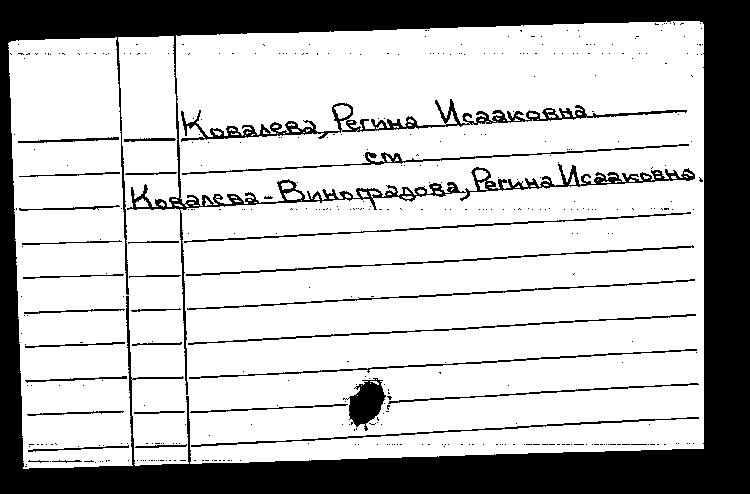 Ковалева, Регина Исааковна.
см.
Ковалева-Виноградова, Регина Исааковна.